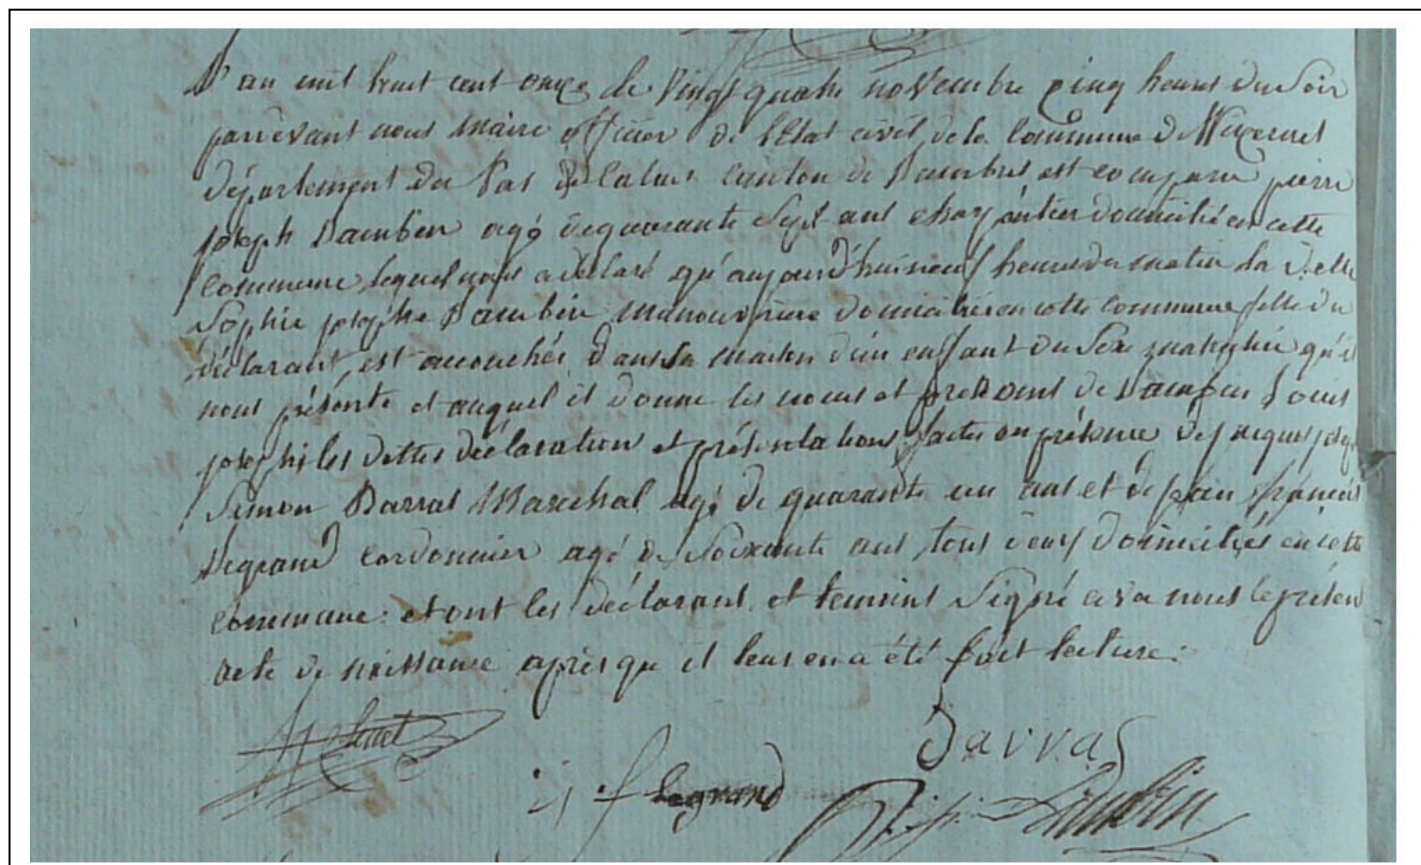 L'an mil huit cent onze le Vingt quatre novembre cinq heures du Soir
parrevant nous Maire officier de l'Etat civil de la Commune de Wizernes
département du Pas de Calais Canton de Lumbres est comparu pierre
joseph Daubin agé de quarante Sept ans charpentier domicilié en cette
commune lequel nous a déclaré qu'aujourd'hui neuf heures du matin la d.elle
Sophie josephe Daubin Manouvrière domiciliée en cette commune fille du
déclarant, est accouchée dans sa maison d'un enfant du Sexe masculin qu'il
nous présente et auquel il donne les noms et prénoms de Daubin Louis
joseph; les dittes déclaration et présentations faites en présence de jacques joseph
Simon Darras Marechal agé de quarante un ans et de jean françois
Legrand cordonnier agé de Soixante ans tous deux domiciliés en cette
commune: et ont les déclarant et temoins Signé avec nous le présent
acte de naissance après qu'il leur en a été fait lecture.
Darras
j f legrand
Daubin